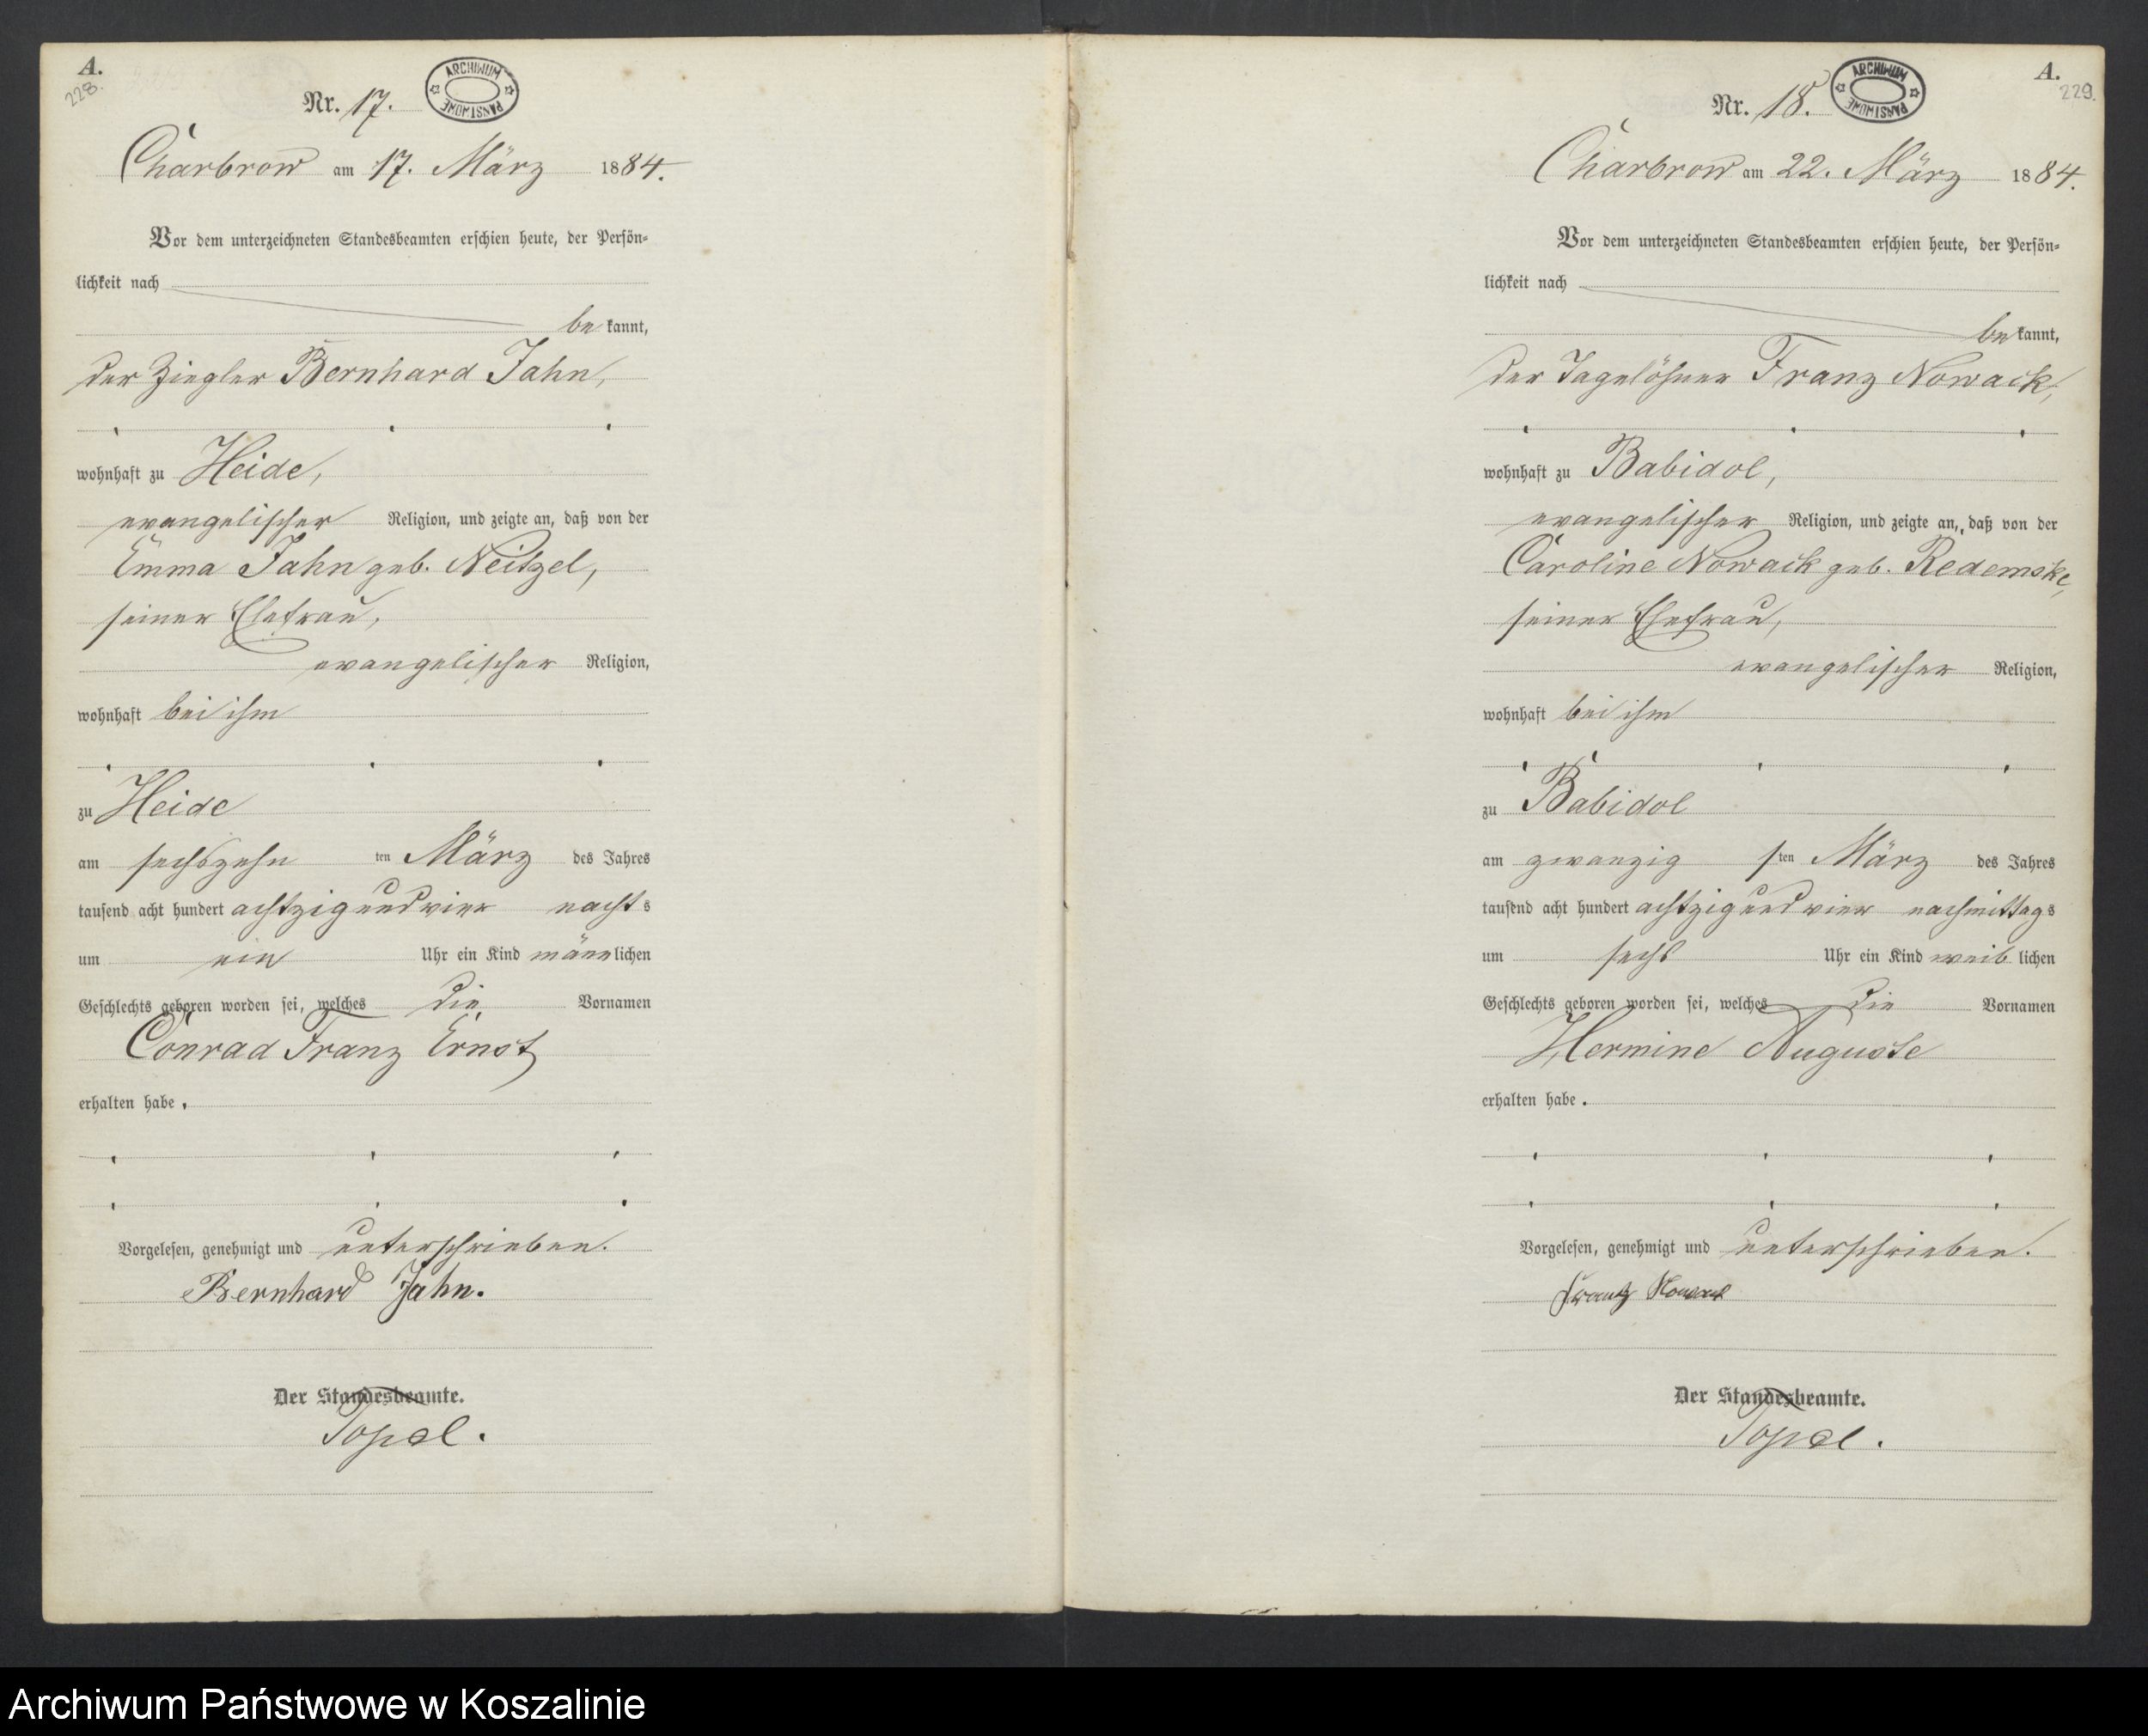 A.
228.
Nr. 17.
ARCHIWUM PAŃSTWOWE
Charbrow am 17. März 1884.
Vor dem unterzeichneten Standesbeamten erschien heute, der Persön-
lichkeit nach
be kannt,
der Ziegler Bernhard Jahn,
wohnhaft zu Heide,
evangelischer Religion, und zeigte an, daß von der
Emma Jahn geb. Neitzel,
seiner Ehefrau,
evangelischer Religion,
wohnhaft bei ihm
zu Heide
am sechszehn ten März des Jahres
tausend acht hundert achtzig und vier nachts
um ein Uhr ein Kind männlichen
Geschlechts geboren worden sei, welches die Vornamen
Conrad Franz Ernst
erhalten habe.
Vorgelesen, genehmigt und unterschrieben.
Bernhard Jahn.
Der Standesbeamte.
Topel.
A.
229.
Nr. 18.
ARCHIWUM PAŃSTWOWE
Charbrow am 22. März 1884.
Vor dem unterzeichneten Standesbeamten erschien heute, der Persön-
lichkeit nach
be kannt,
der Tagelöhner Franz Nowack,
wohnhaft zu Babidol,
evangelischer Religion, und zeigte an, daß von der
Caroline Nowack geb. Redemske,
seiner Ehefrau,
evangelischer Religion,
wohnhaft bei ihm
zu Babidol
am zwanzig sten März des Jahres
tausend acht hundert achtzig und vier nachmittags
um sechs Uhr ein Kind weiblichen
Geschlechts geboren worden sei, welches die Vornamen
Hermine Auguste
erhalten habe.
Vorgelesen, genehmigt und unterschrieben.
Frantz Nowack
Der Standesbeamte.
Topel.
Archiwum Państwowe w Koszalinie